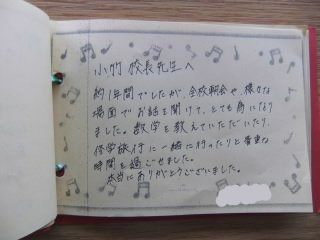 小竹 校長先生へ
約1年間でしたが、全校朝会や、様々な
場面でお話を聞けて、とても身になり
ました。数学を教えていただいたり、
修学旅行に一緒に行ったりと貴重な
時間を過ごせました。
本当にありがとうございました。